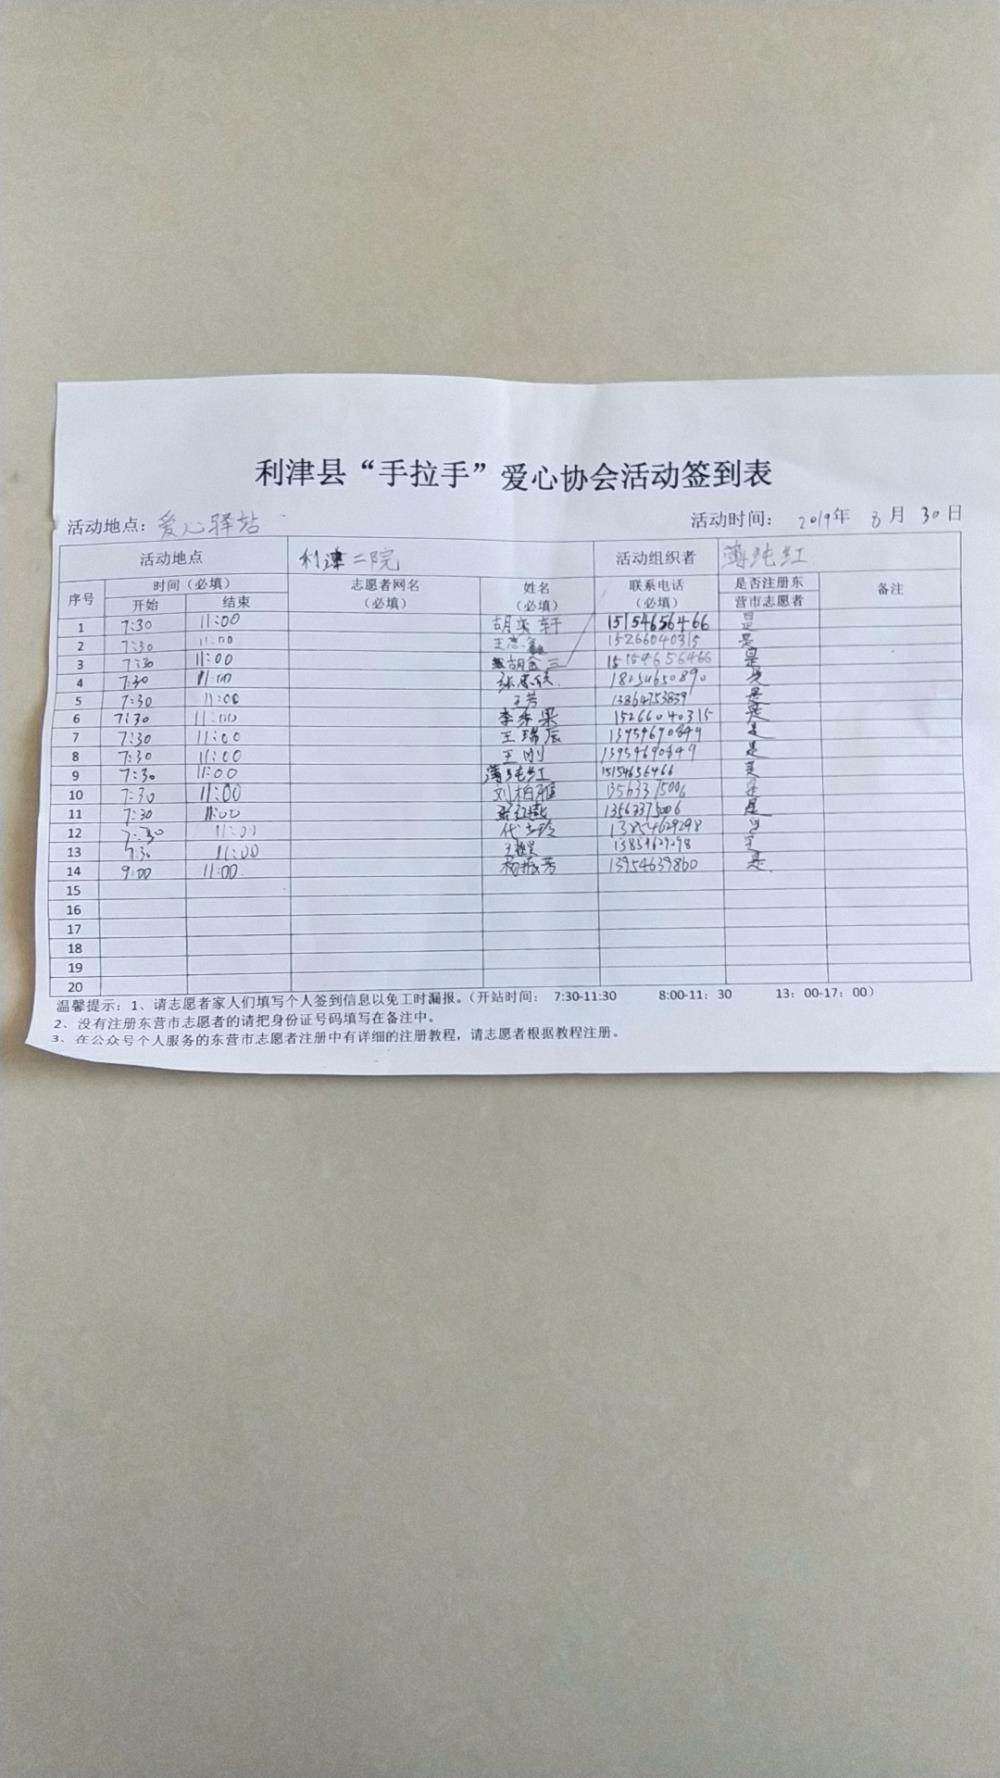 利津县“手拉手”爱心协会活动签到表
活动地点：爱心驿站 活动时间： 2019年 8月 30日
活动地点 利津二院 活动组织者 薄纯红
序号 时间（必填） 志愿者网名（必填） 姓名（必填） 联系电话（必填） 是否注册东营市志愿者 备注
开始 结束
1 7:30 11:00 胡英轩 15154656466 是
2 7:30 11:00 15266040315 是
3 7:30 11:00 15154656466 是
4 7:30 11:00 18254650890 是
5 7:30 11:00 王芳 是
6 7:30 11:00 15266040315 是
7 7:30 11:00 王瑞辰 13954690849 是
8 7:30 11:00 王刚 13954690849 是
9 7:30 11:00 薄纯红 15154656466 是
10 7:30 11:00 刘柏雁 13563375006 是
11 7:30 11:00 13563375006 是
12 7:30 11:00 13854629298 是
13 7:30 11:00 13854629298 是
14 9:00 11:00 杨振芳 13954639860 是
15
16
17
18
19
20
温馨提示：1、请志愿者家人们填写个人签到信息以免工时漏报。（开站时间： 7:30-11:30 8:00-11：30 13：00-17：00）
2、没有注册东营市志愿者的请把身份证号码填写在备注中。
3、在公众号个人服务的东营市志愿者注册中有详细的注册教程，请志愿者根据教程注册。